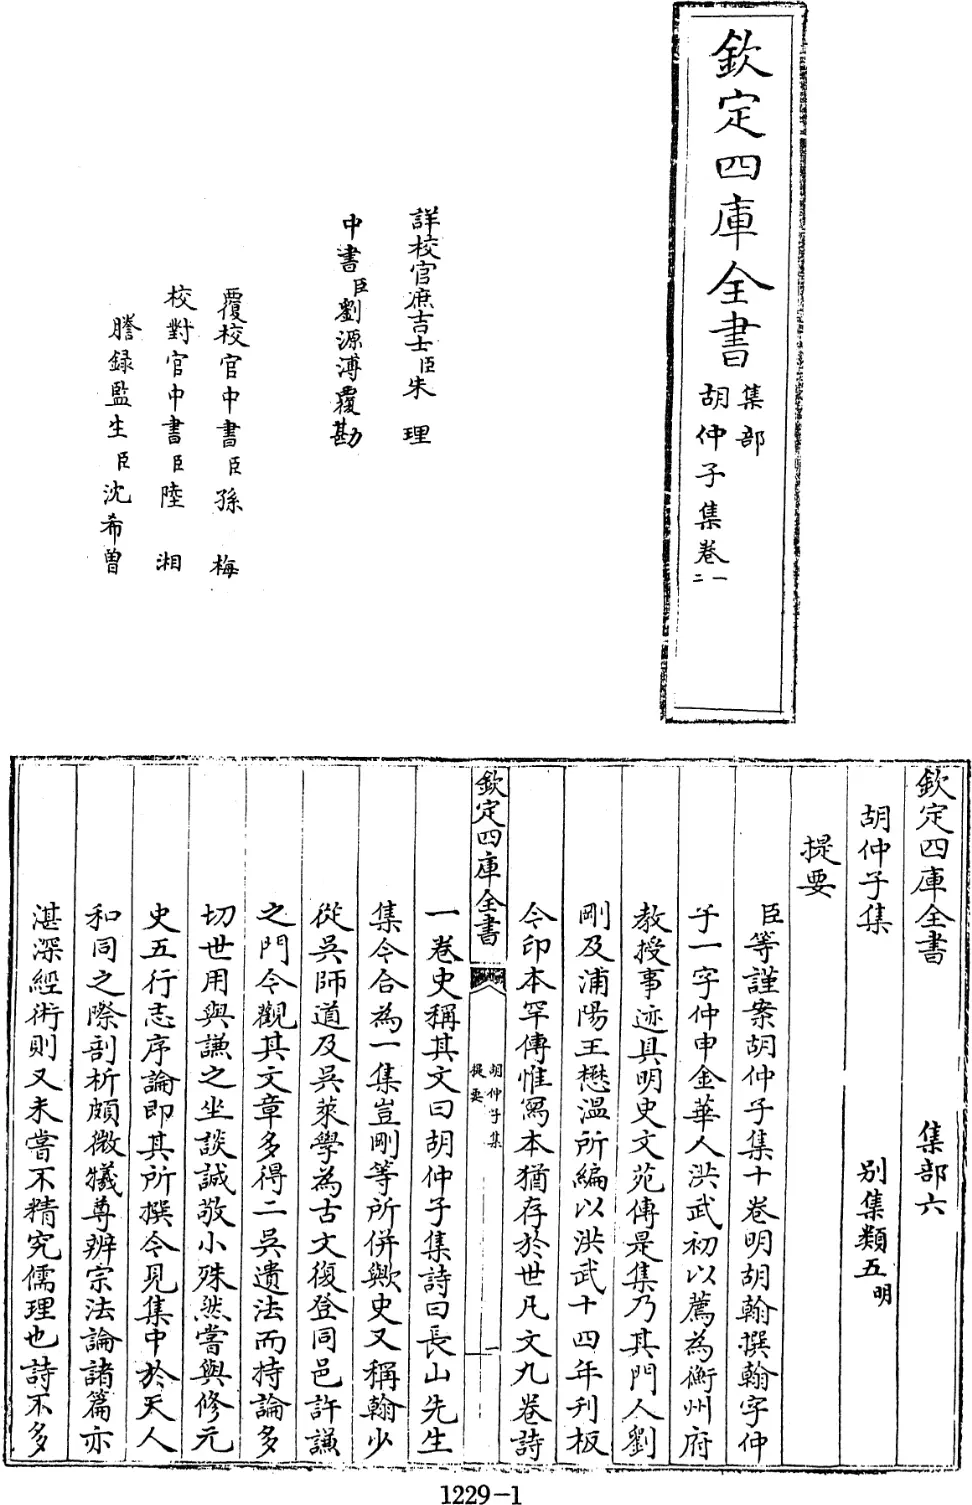 欽定四庫全書
集部
胡仲子集卷一二
詳校官庶吉士臣朱理
中書臣劉源溥覆勘
覆校官中書臣孫梅
校對官中書臣陸湘
謄録監生臣沈希曾
欽定四庫全書 集部六
胡仲子集 别集類五明
提要
臣等謹案胡仲子集十卷明胡翰撰翰字仲
子一字仲申金華人洪武初以薦為衡州府
教授事迹具明史文苑傳是集乃其門人劉
剛及浦陽王懋温所編以洪武十四年刋板
今印本罕傳惟寫本猶存於世凡文九卷詩
欽定四庫全書 胡仲子集提要 一
一卷史稱其文曰胡仲子集詩曰長山先生
集今合為一集豈剛等所併歟史又稱翰少
從吳師道及吳萊學為古文復登同邑許謙
之門今觀其文章多得二吳遺法而持論多
切世用與謙之坐談誠敬小殊然嘗與修元
史五行志序論即其所撰今見集中於天人
和同之際剖析頗微犧尊辨宗法論諸篇亦
湛深經術則又未嘗不精究儒理也詩不多
1229-1